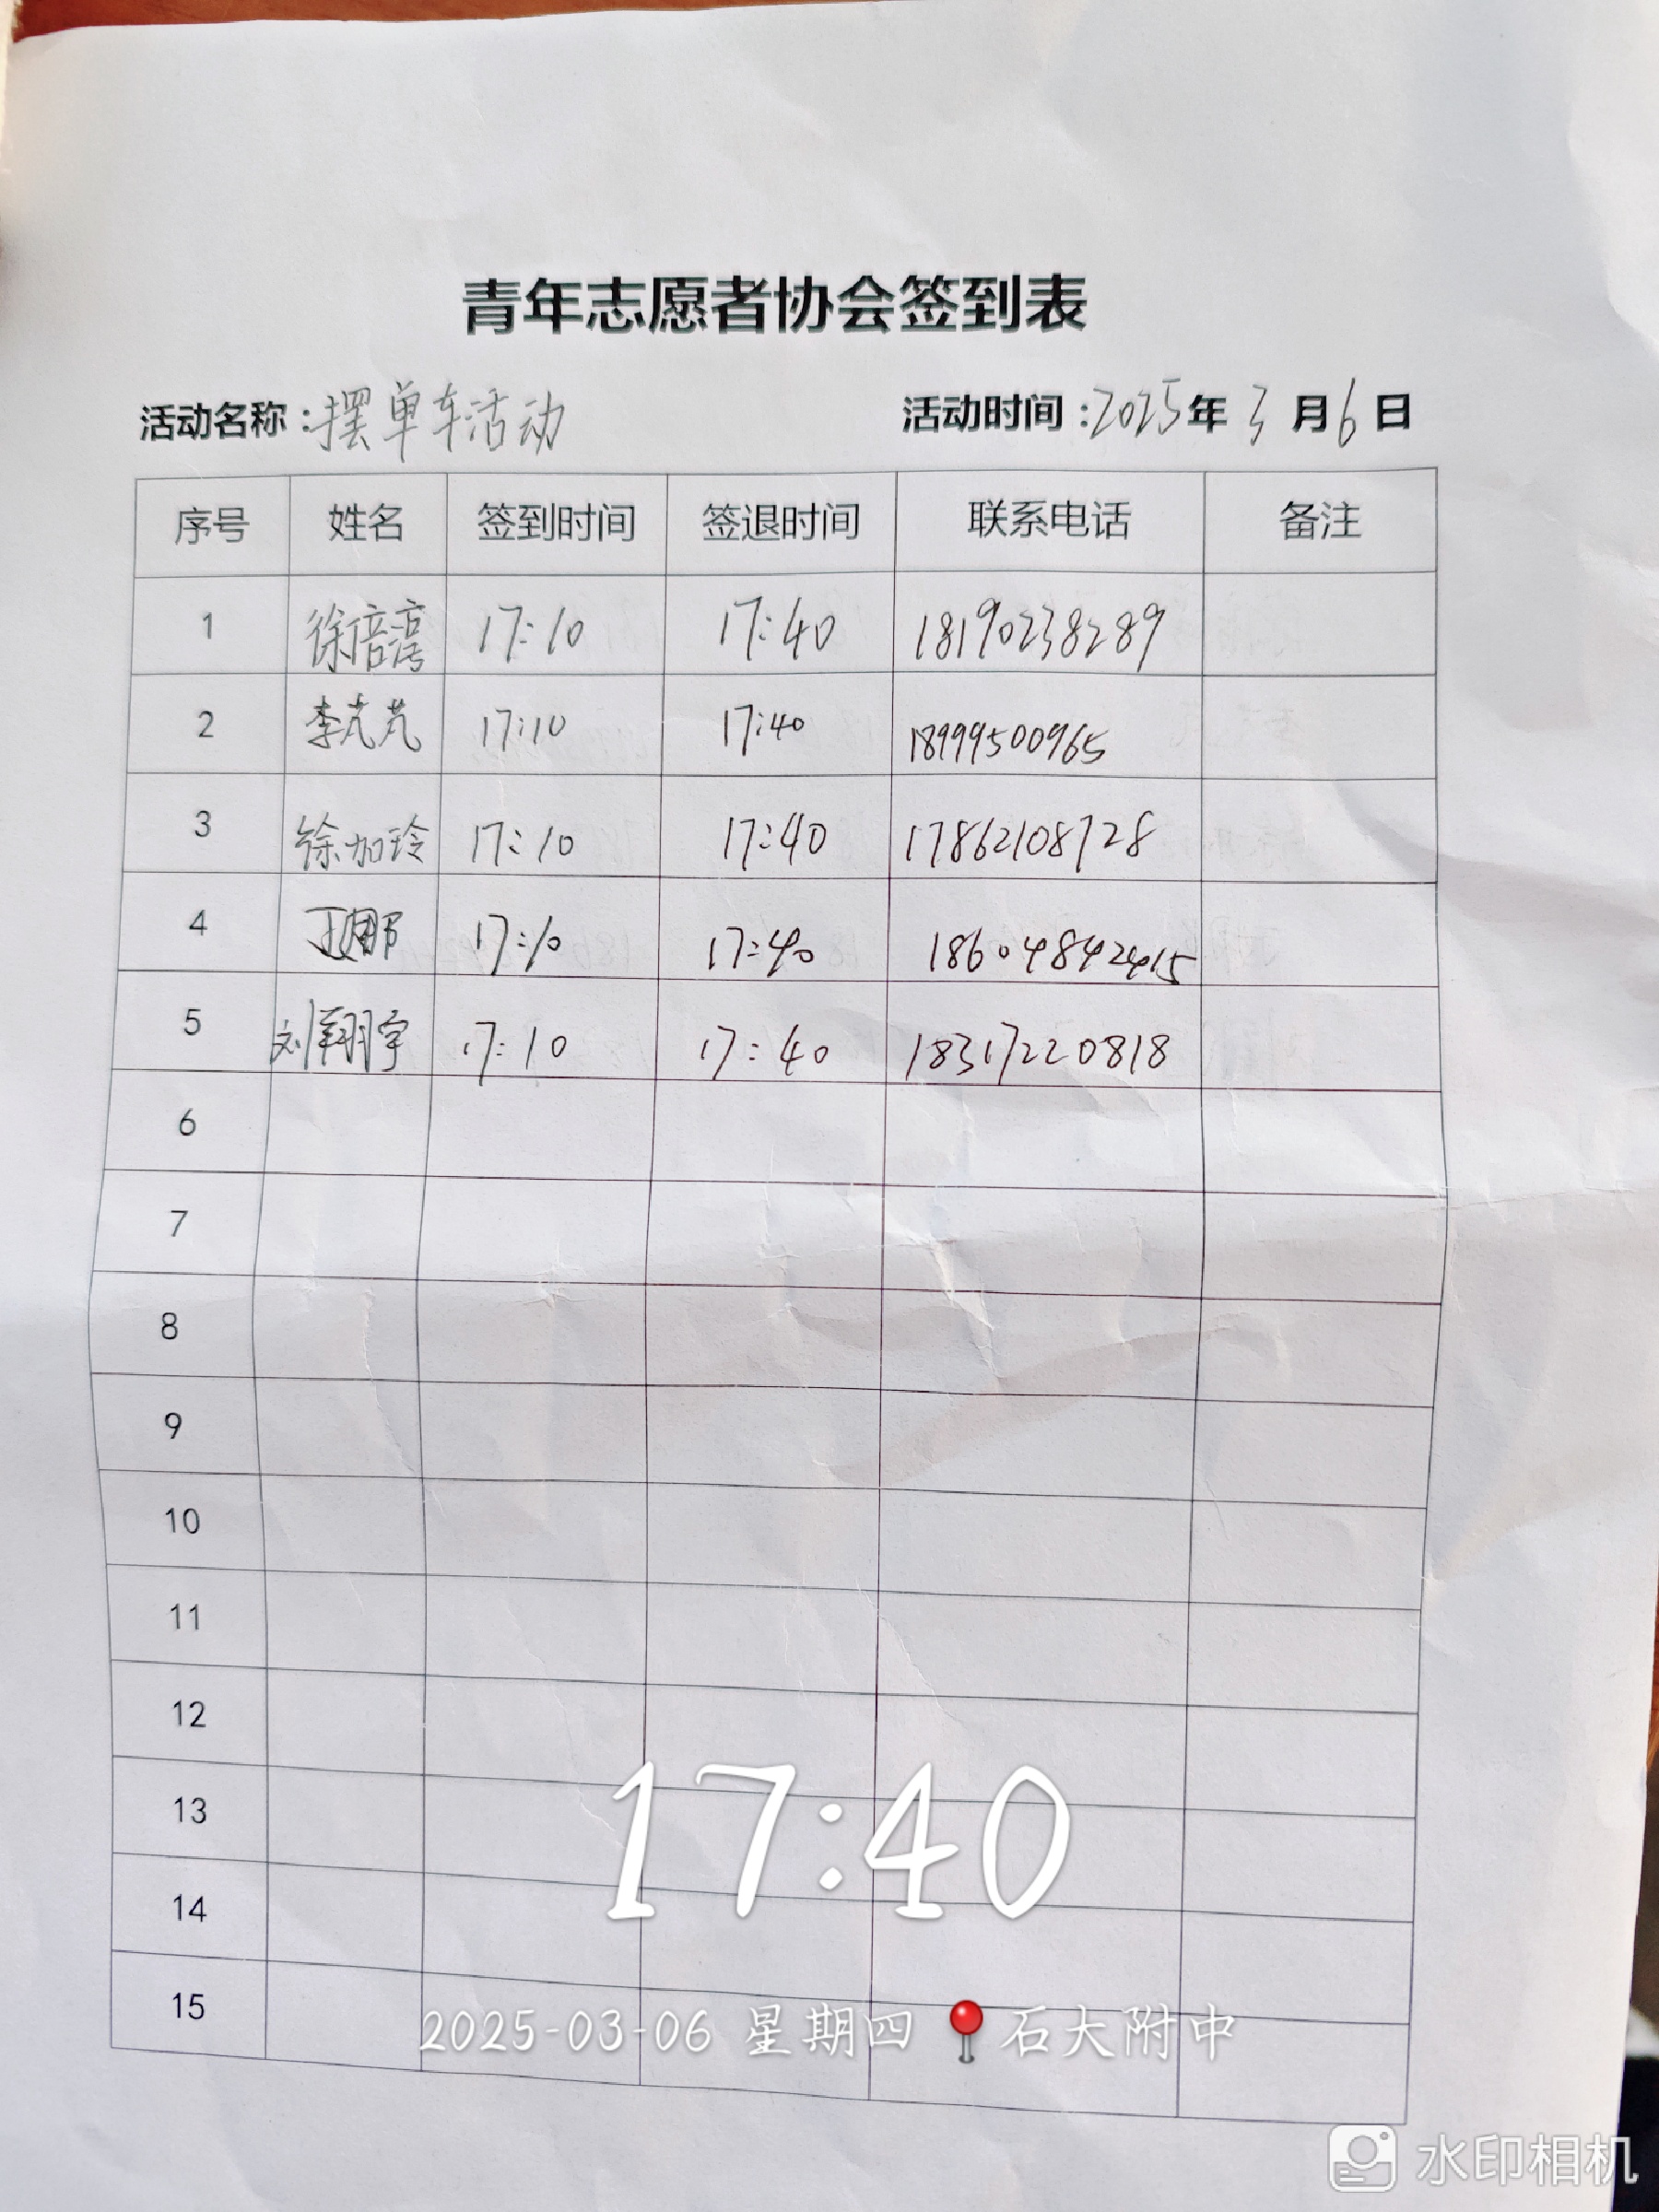 青年志愿者协会签到表
活动名称:摆单车活动 活动时间:2025年3月6日
序号 姓名 签到时间 签退时间 联系电话 备注
1 徐倍淳 17:10 17:40 18190238289
2 李芃芃 17:10 17:40 18999500965
3 徐加玲 17:10 17:40 17862108728
4 17:10 17:40
5 刘翔宇 17:10 17:40 18317220818
6
7
8
9
10
11
12
13
14
15
17:40
2025-03-06 星期四 石大附中
水印相机